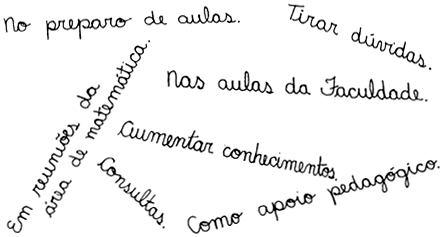 No preparo de aulas.
Tirar dúvidas.
Nas aulas da Faculdade.
Em reuniões da
área de matemática.
Aumentar conhecimentos.
Consultas.
Como apoio pedagógico.